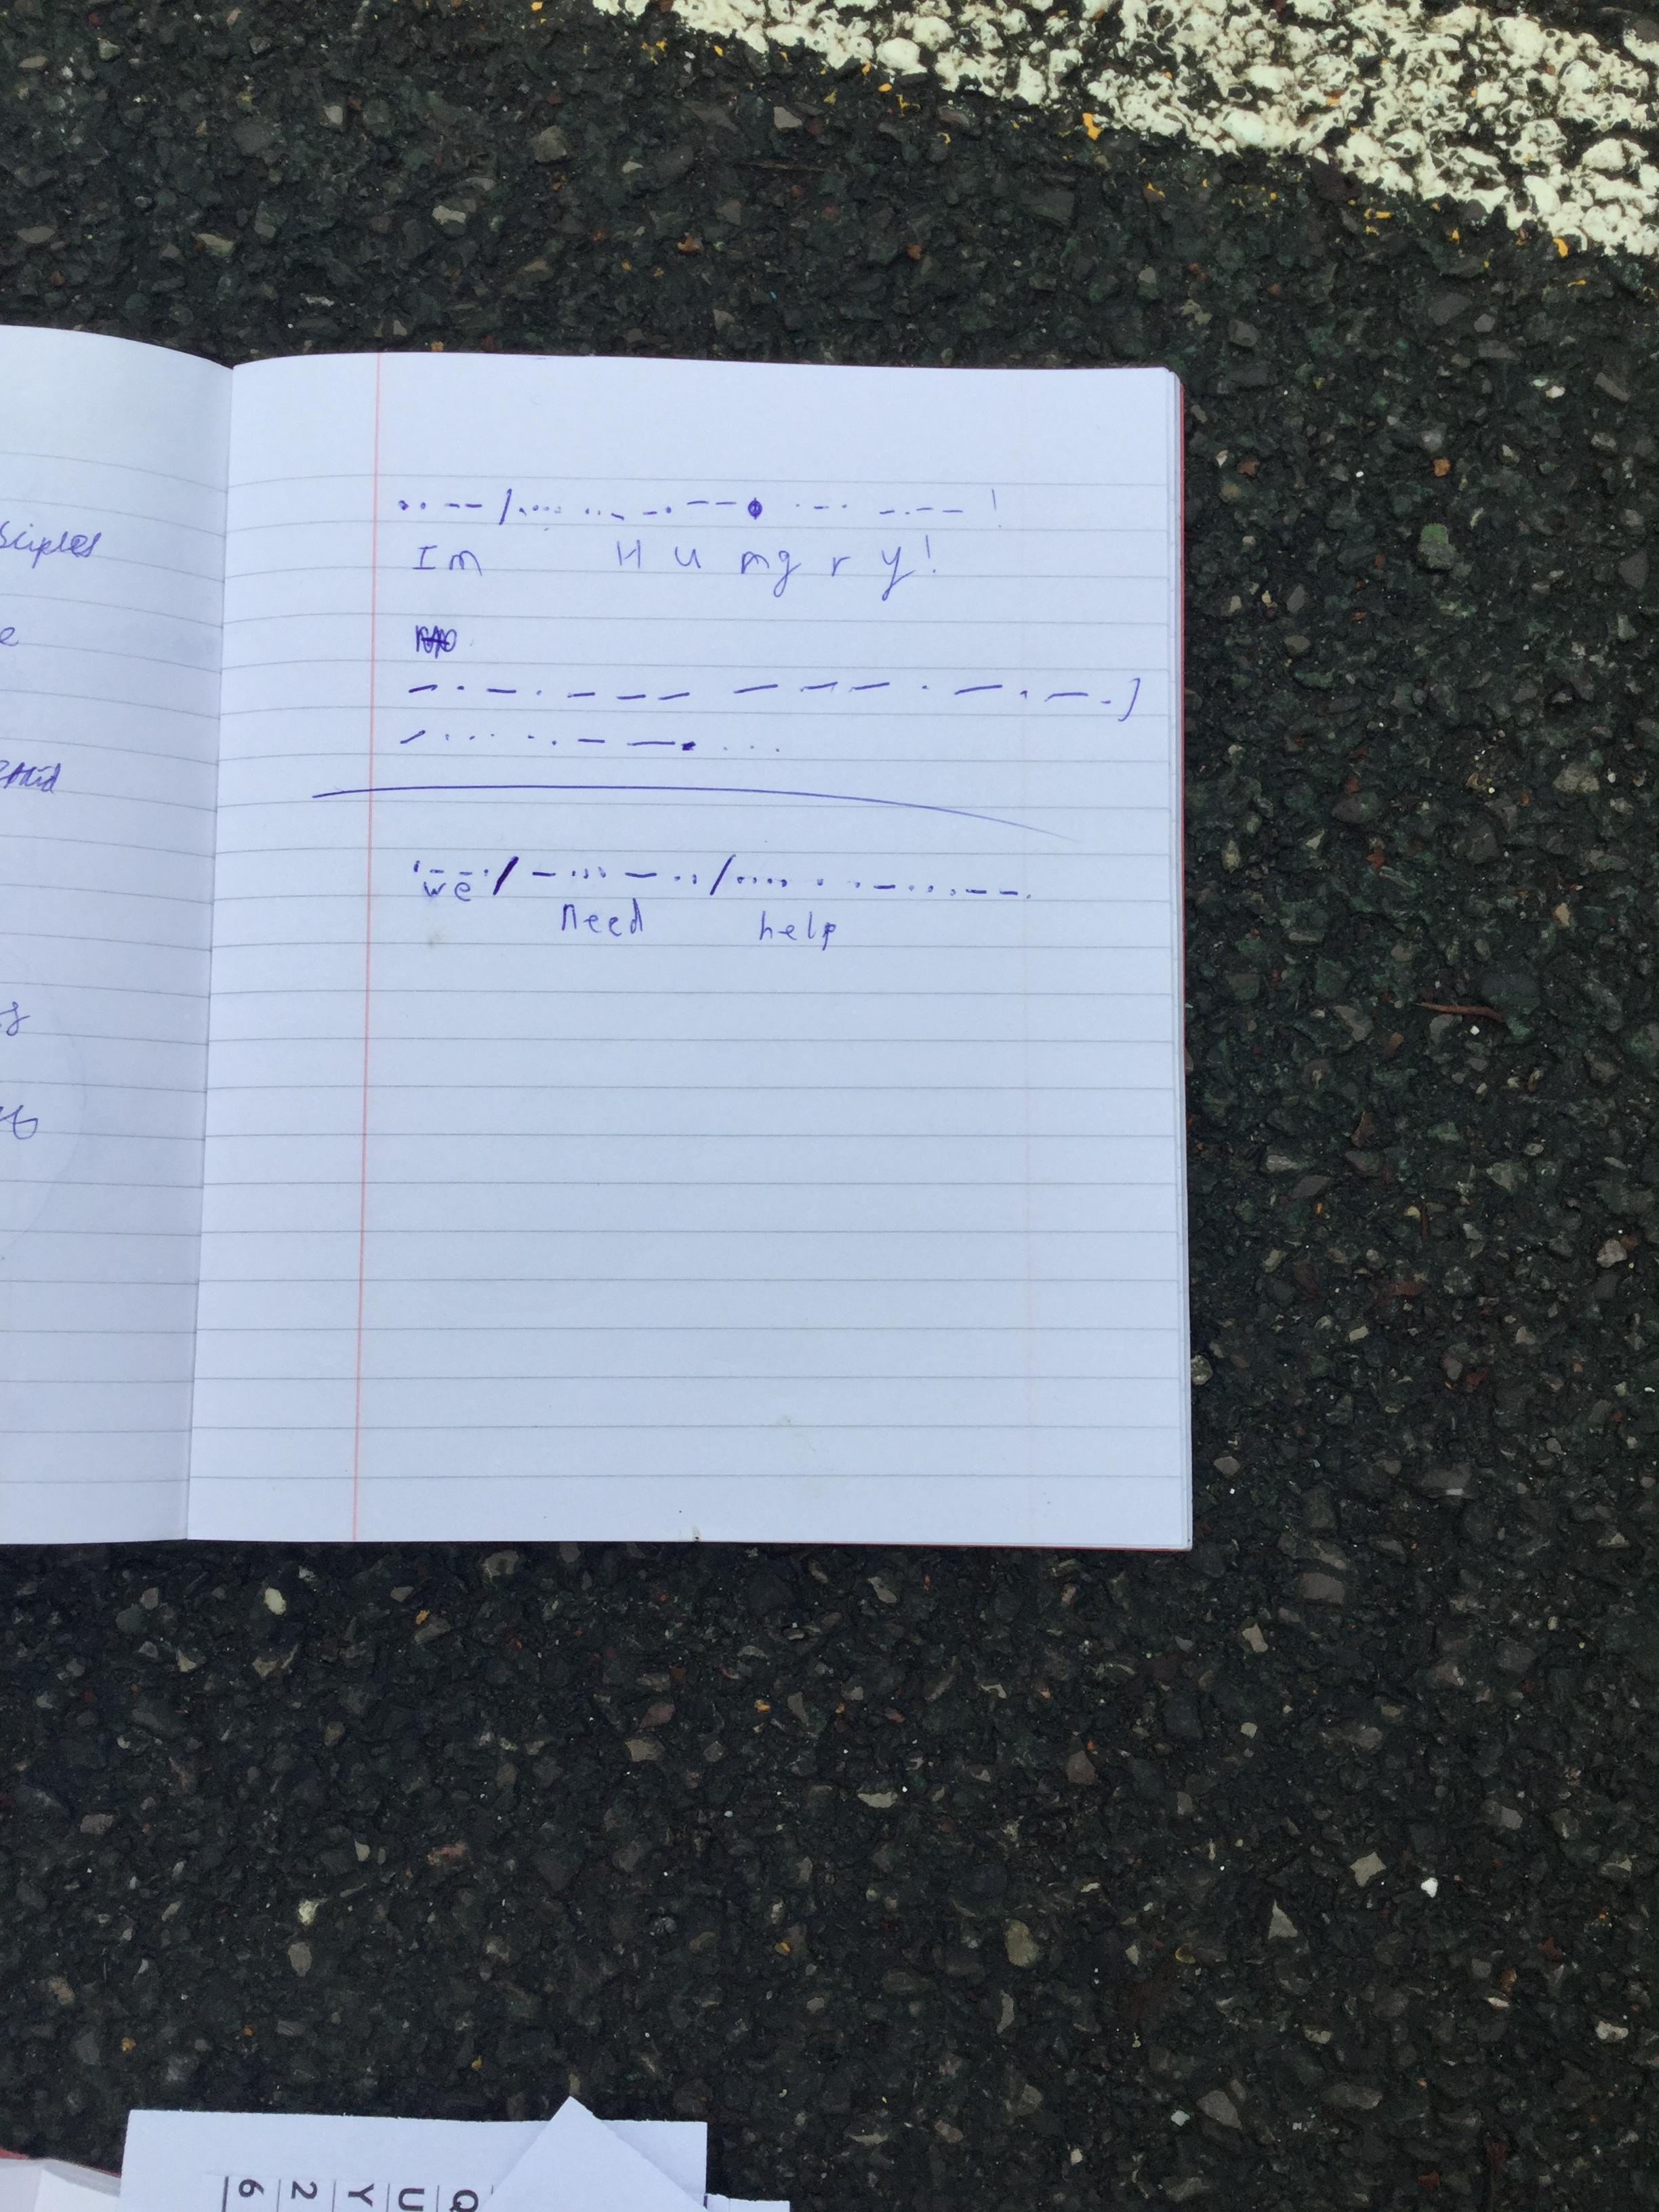 sciples
e
.. -- / .... ..- -. --. .-. -.-- !
Im Hungry!
- . - . - - - - - - . - . - .]
- .... . .. - - . ...
.-- . / -. . . -.. / .... . .-.. .--.
we need help
6 2 Y U Q